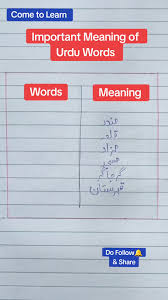 Come to Learn
Important Meaning of
Urdu Words
Words
Meaning
مندر
مزار
مسجد
گرجا گھر
قبرستان
Do Follow🔔
& Share